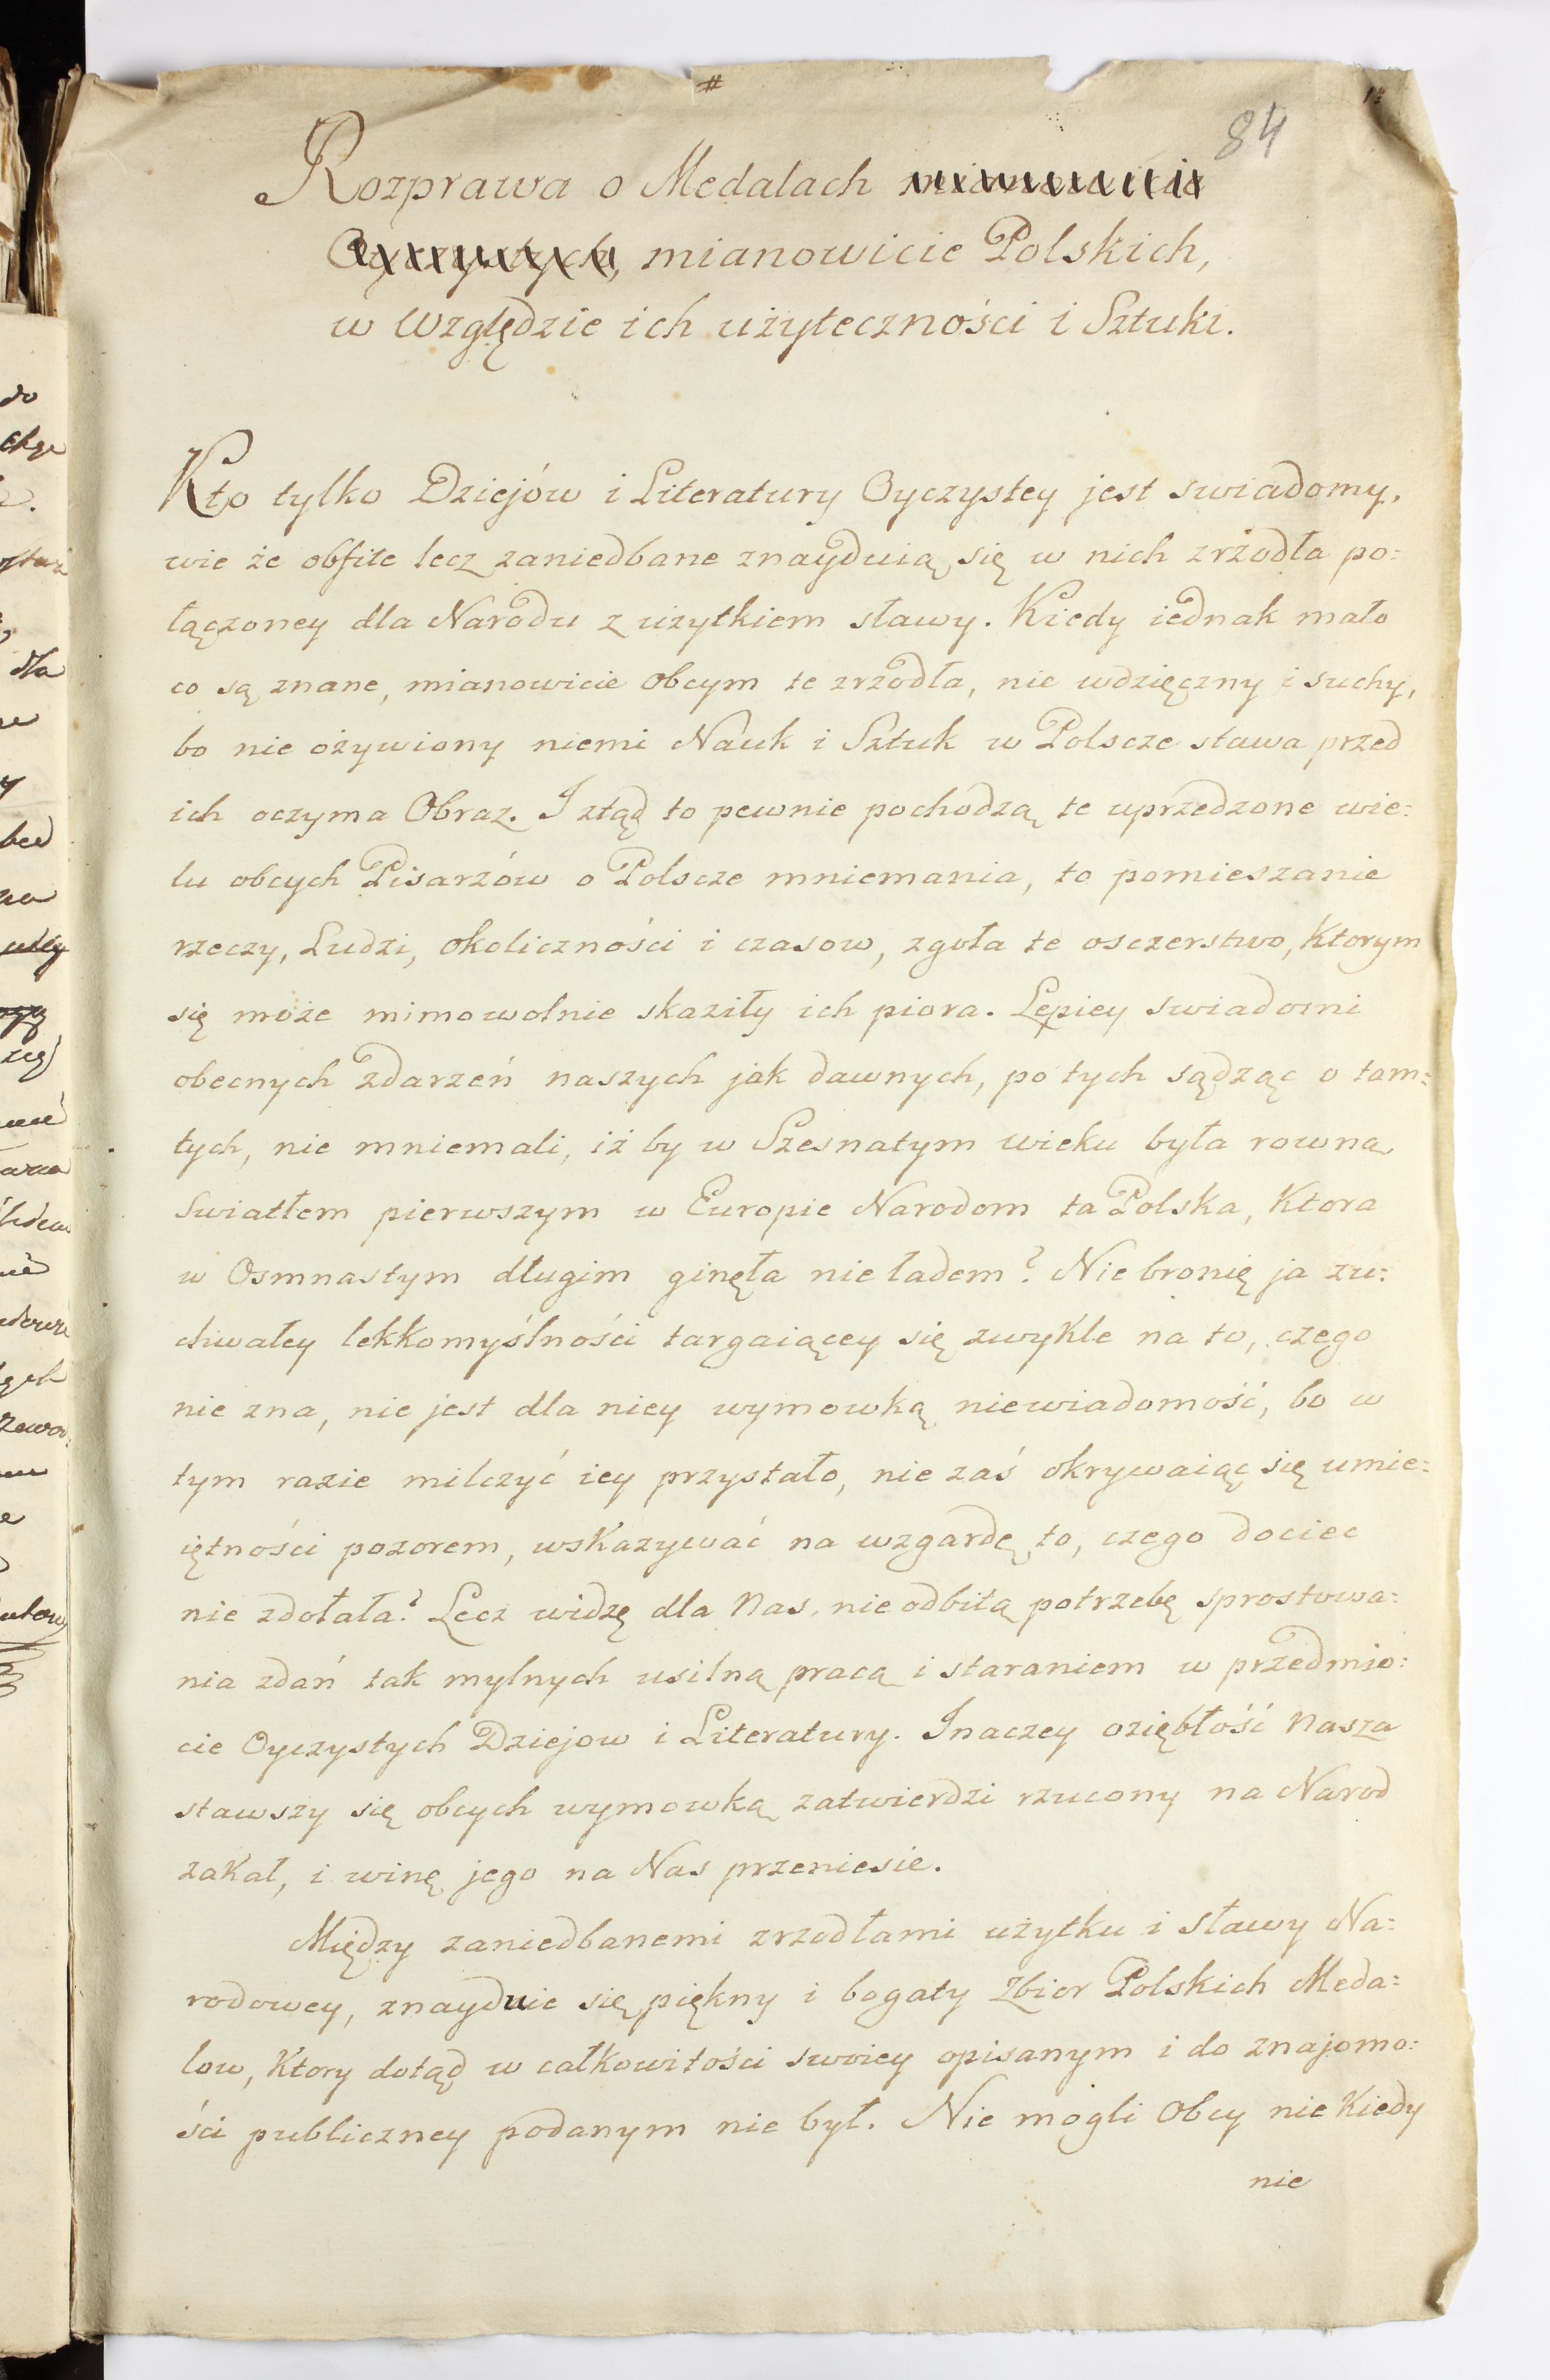 #
84
Rozprawa o Medalach mianowicie
Oyczystych, mianowicie Polskich,
w Względzie ich użyteczności i Sztuki.
Kto tylko Dziejów i Literatury Oyczystey jest swiadomy,
wie że obfite lecz zaniedbane znayduią się w nich zrżodła po=
łączoney dla Narodu z użytkiem sławy. Kiedy iednak mało
co są znane, mianowicie obcym te zrzodła, nie wdzięczny i suchy,
bo nie ożywiony niemi Nauk i Sztuk w Polscze stawa przed
ich oczyma Obraz. I ztąd to pewnie pochodzą te uprzedzone wie=
lu obcych Pisarzów o Polscze mniemania, to pomieszanie
rzeczy, Ludzi, okoliczności i czasow, zgoła te osczerstwo, Ktorym
się może mimowolnie skaziły ich piora. Lepiey swiadomi
obecnych zdarzeń naszych jak dawnych, po tych sądząc o tam=
tych, nie mniemali, iż by w Szesnatym wieku była rowną
Swiatłem pierwszym w Europie Narodom ta Polska, Ktora
w Osmnastym długim ginęła nie ładem? Nie bronię ja zu=
chwałey lekkomyślności targaiącey się zwykle na to, czego
nie zna, nie jest dla niey wymowką niewiadomość, bo w
tym razie milczyć iey przystało, nie zaś okrywaiąc się umie=
iętności pozorem, wskazywać na wzgardę to, czego dociec
nie zdołała? Lecz widzę dla Nas nie odbitą potrzebę sprostowa=
nia zdań tak mylnych usilną pracą i staraniem w przedmio=
cie Oyczystych Dziejow i Literatury. Inaczey oziębłość Nasza
stawszy się obcych wymowką zatwierdzi rzucony na Narod
zakał, i winę jego na Nas przeniesie.
Między zaniedbanemi zrzodłami użytku i Sławy Na=
rodowey, znayduie się piękny i bogaty Zbior Polskich Meda=
low, Ktory dotąd w całkowitości swoiey opisanym i do znajomo=
ści publiczney podanym nie był. Nie mogli Obcy nie Kiedy
nie